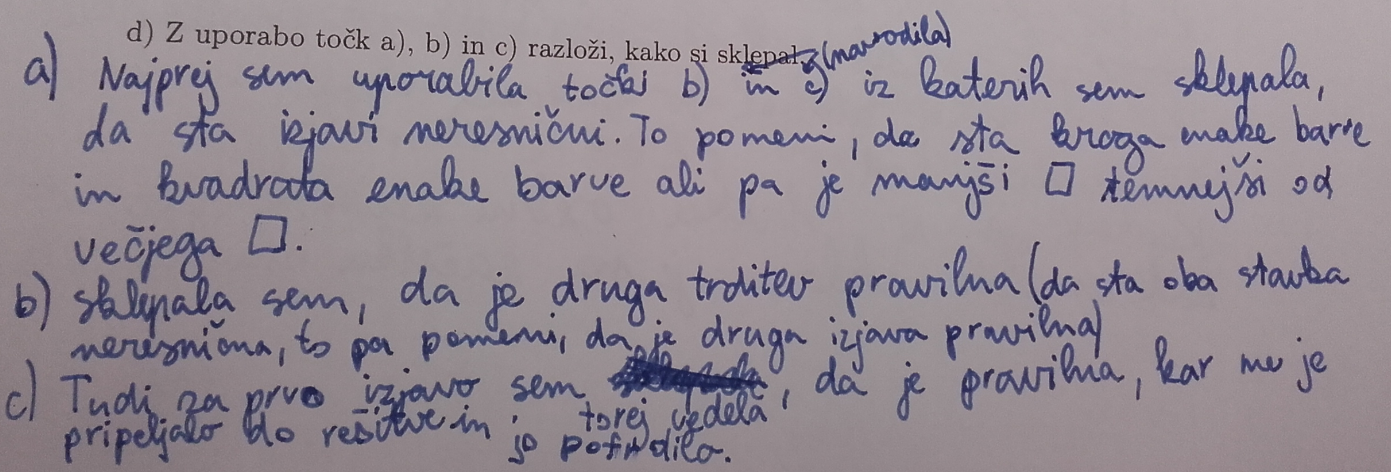 d) Z uporabo točk a), b) in c) razloži, kako si sklepal.
(navodila)
a) Najprej sem uporabila točki b) in c) iz katerih sem sklepala,
da sta izjavi neresnični. To pomeni, da sta kroga enake barve
in kvadrata enake barve ali pa je manjši □ temnejši od
večjega □.
b) sklepala sem, da je druga trditev pravilna (da sta oba stavka
neresnična, to pa pomeni, da je druga izjava pravilna)
c) Tudi za prvo izjavo sem torej vedela, da je pravilna, kar me je
pripeljalo do rešitve in jo potrdilo.